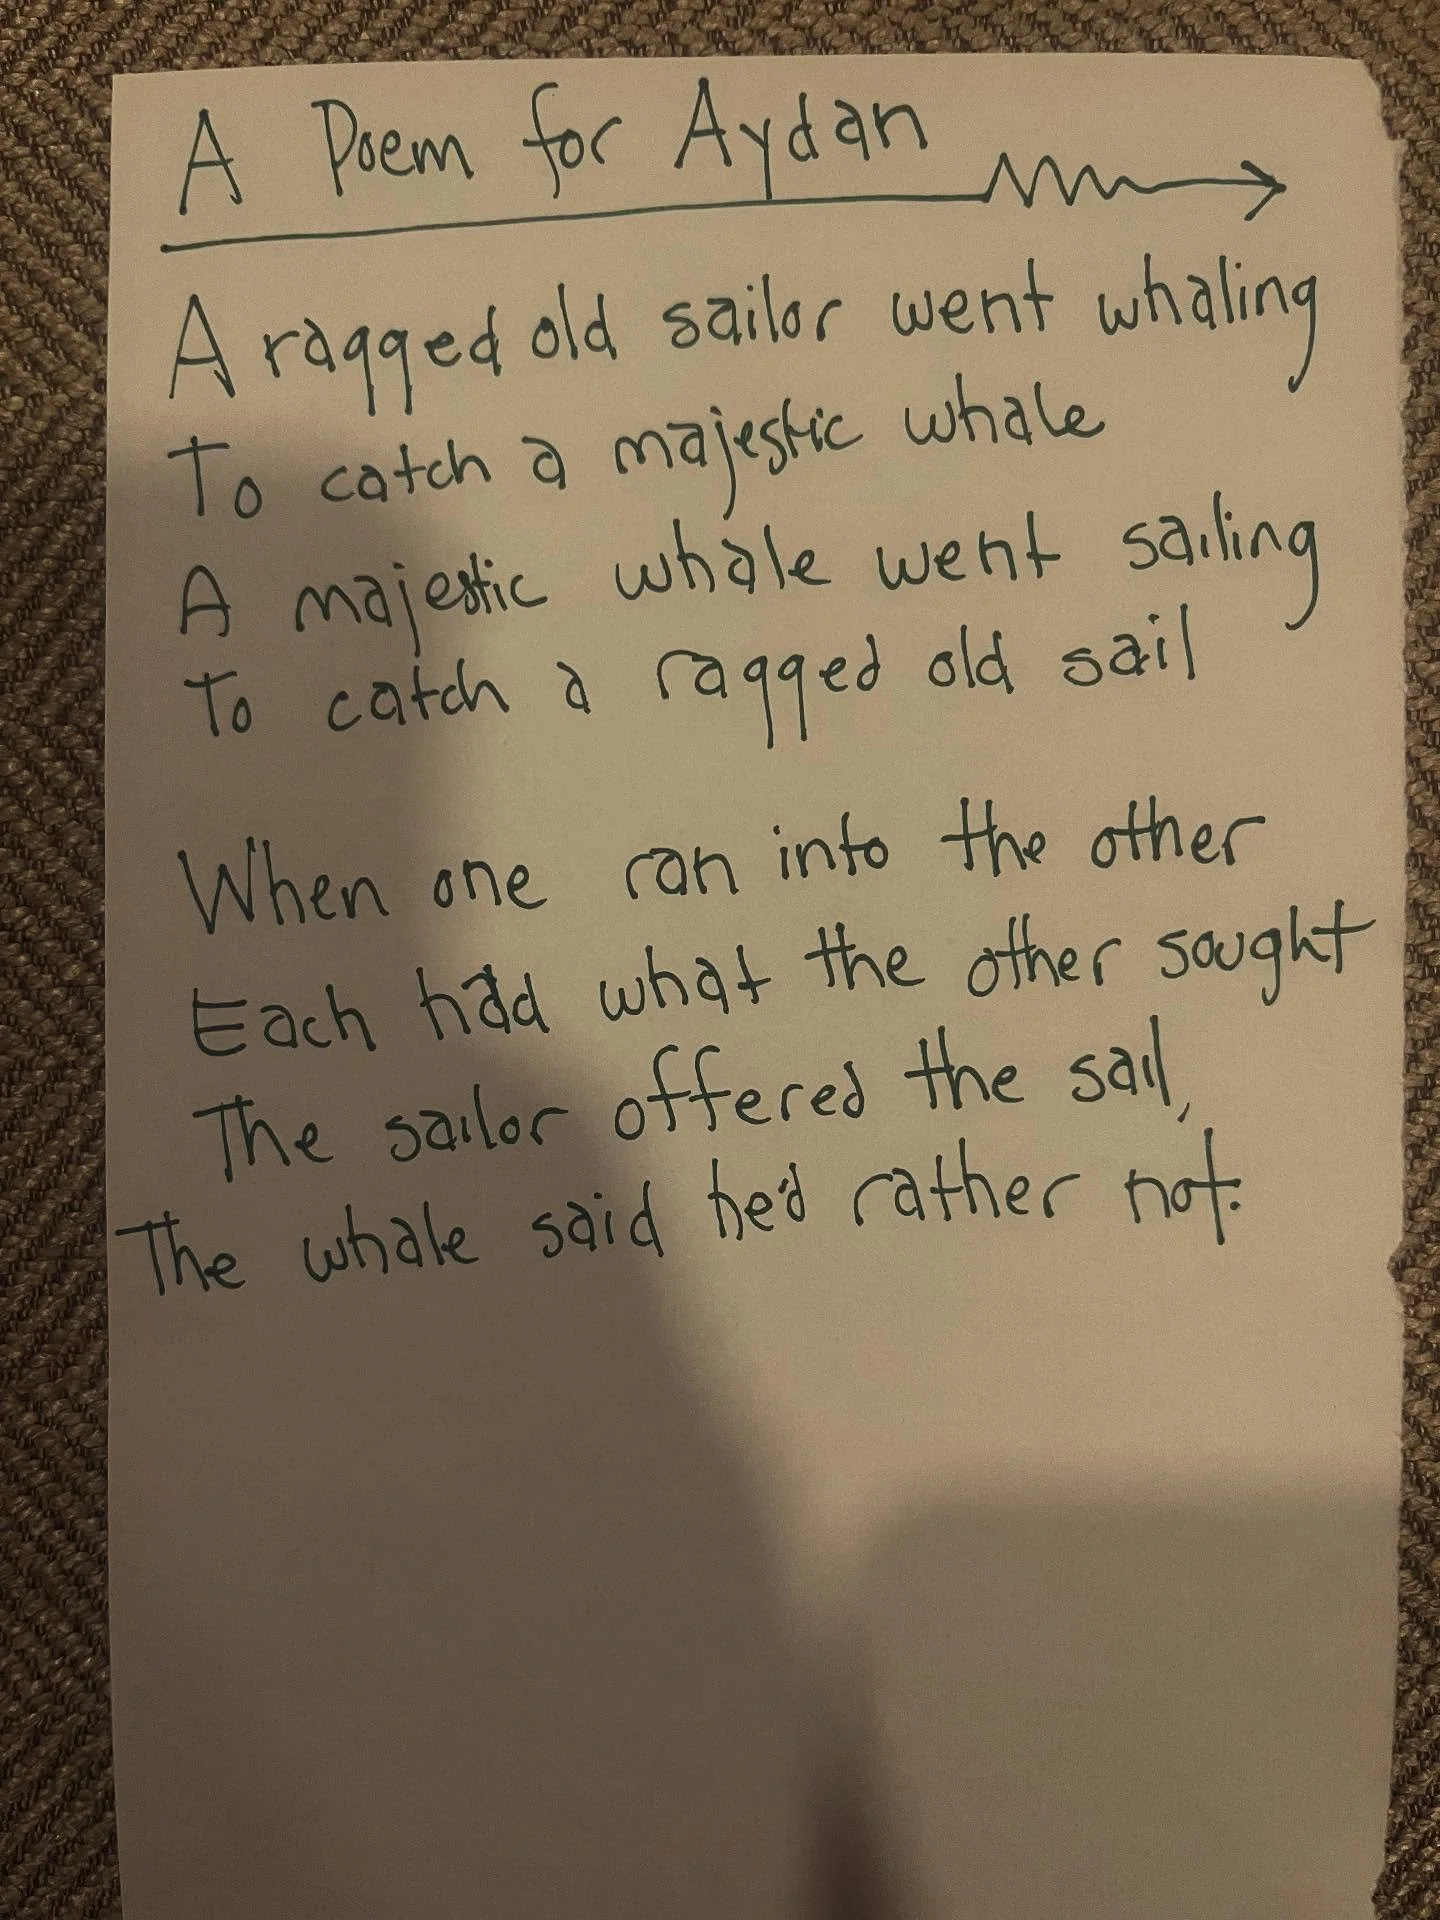 A Poem for Aydan
A ragged old sailor went whaling
To catch a majestic whale
A majestic whale went sailing
To catch a ragged old sail
When one ran into the other
Each had what the other sought
The sailor offered the sail,
The whale said he'd rather not.